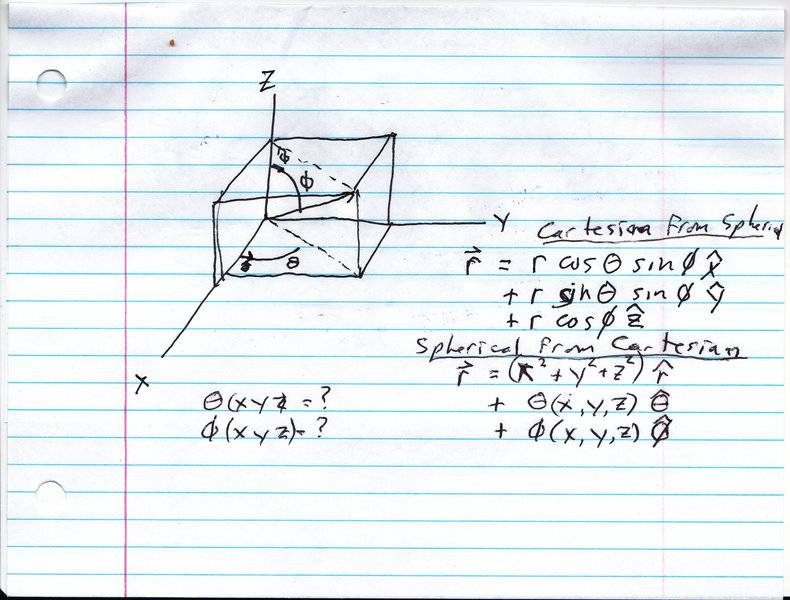 Z
φ
Y
θ
X
Cartesian From Spheri
r⃗ = r cos θ sin φ x̂
+ r sin θ sin φ ŷ
+ r cos φ ẑ
Spherical From Cartesian
r⃗ = (x² + y² + z²) r̂
θ(x y z = ?
+ θ(x, y, z) θ̂
φ(x y z) = ?
+ φ(x, y, z) φ̂